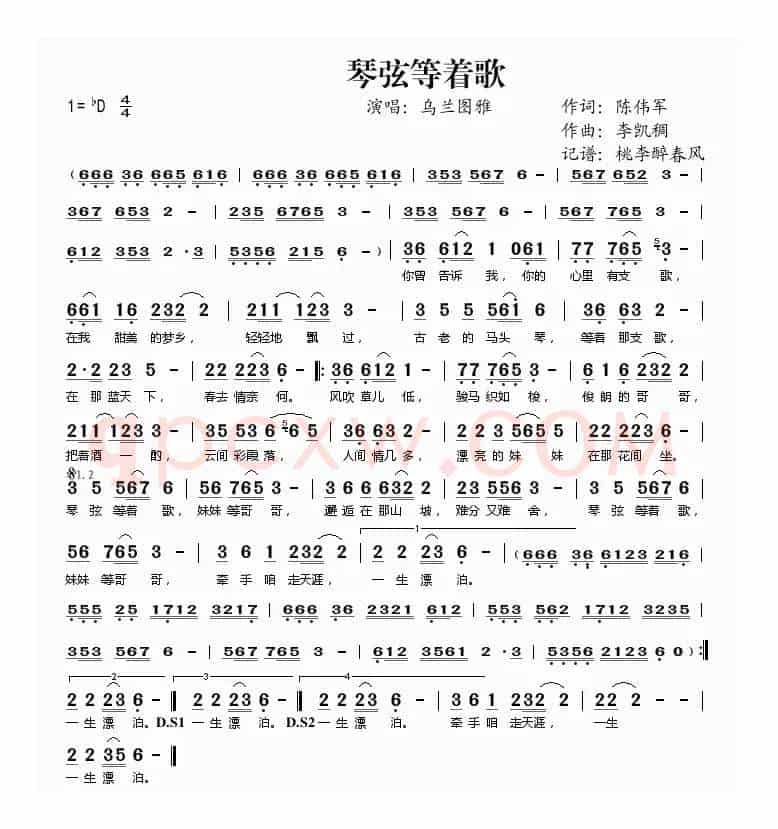 琴弦等着歌
1=♭D 4/4 演唱：乌兰图雅 作词：陈伟军
作曲：李凯稠
记谱：桃李醉春风
(666 36 665 616 | 666 36 665 616 | 353 567 6 - | 567 652 3 - |
367 653 2 - | 235 6765 3 - | 353 567 6 - | 567 765 3 - |
612 353 2·3 | 5356 215 6 - ) | 36 612 1 061 | 77 765 3 - |
你曾 告诉 我， 你的 心里 有支 歌，
661 16 232 2 | 211 123 3 - | 3 5 5 561 6 | 36 63 2 - |
在我 甜美 的梦乡， 轻轻地 飘 过， 古 老 的 马头 琴， 等着 那支歌，
2·2 23 5 - | 22 223 6 - |: 36 612 1 - | 77 765 3 - | 61 6 232 2 |
在 那 蓝天 下， 春去 情奈 何。 风吹 草儿 低， 骏马 织如 梭， 俊 朗 的 哥 哥，
211 123 3 - | 55 53 6 65 | 36 63 2 - | 2 2 3 565 5 | 22 23 6 - |
把香酒 一 酌， 云间 彩霞 落， 人间 情几 多， 漂 亮 的 妹 妹 在那 花间 坐。
qpcxw.COM
1.2
3 5 567 6 | 56 765 3 - | 3 6 6 6 32 2 | 23 556 3 - | 3 5 567 6 |
琴 弦 等着 歌， 妹妹 等哥 哥， 邂 逅 在 那山 坡， 难分 又难 舍， 琴 弦 等着 歌，
1
56 765 3 - | 3 6 1 232 2 | 2 2 23 6 - | (666 36 6123 216 |
妹妹 等哥 哥， 牵 手 咱 走天涯， 一 生 漂 泊。
555 25 1712 3217 | 666 36 2321 612 | 553 562 1712 3235 |
353 567 6 - | 567 765 3 - | 612 3561 2 - | 5356 2123 6 0) :||
2 3 4
2 2 23 6 - || 2 2 23 6 - || 2 2 23 6 - | 3 6 1 232 2 | 22 2 - |
一 生 漂 泊。D.S1 一 生 漂 泊。D.S2 一 生 漂 泊。 牵 手 咱 走天涯， 一生
2 2 35 6 - ||
一 生 漂 泊。